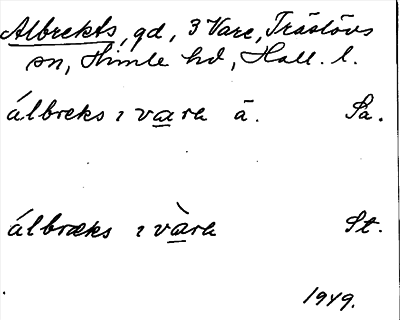 Albrekts, gd, 3 Vare, Träslövs
sn, Himle hd, Hall. l.
álbreks ɪ vara ā. Sa.
álbræks ɪ vàra St.
1949.